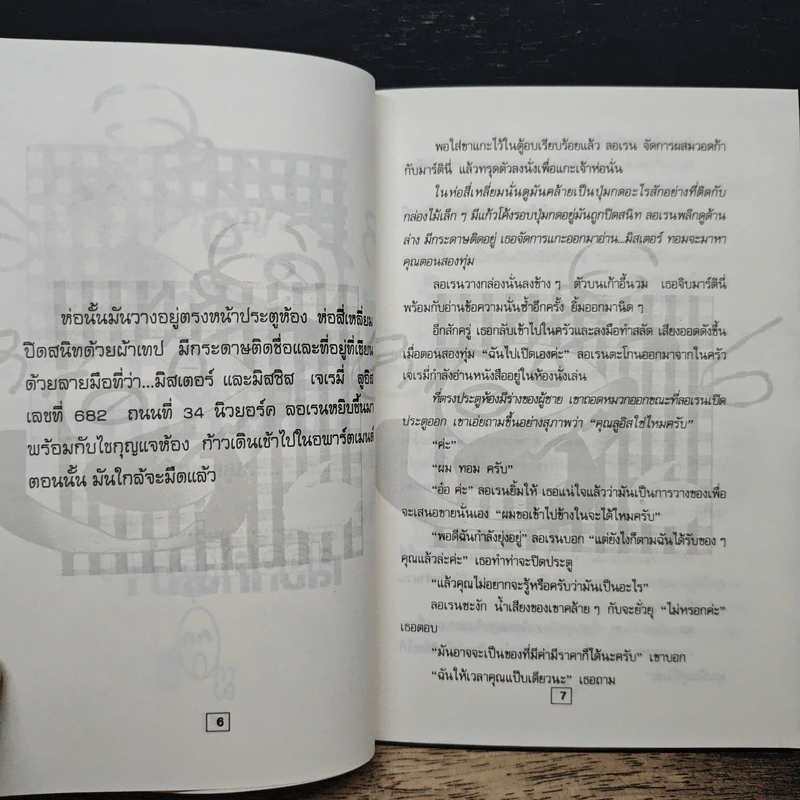 ห่อนั้นมันวางอยู่ตรงหน้าประตูห้อง ห่อสี่เหลี่ยม
ปิดสนิทด้วยผ้าเทป มีกระดาษติดชื่อและที่อยู่ที่เขียน
ด้วยลายมือที่ว่า...มิสเตอร์ และมิสซิส เจเรมี่ ลูอิส
เลขที่ 682 ถนนที่ 34 นิวยอร์ค ลอเรนหยิบขึ้นมา
พร้อมกับไขกุญแจห้อง ก้าวเดินเข้าไปในอพาร์ตเมนต์
ตอนนั้น มันใกล้จะมืดแล้ว
6
พอใส่ขาแกะไว้ในตู้อบเรียบร้อยแล้ว ลอเรน จัดการผสมวอดก้า
กับมาร์ตินี่ แล้วทรุดตัวลงนั่งเพื่อแกะเจ้าห่อนั่น
ในห่อสี่เหลี่ยมนั่นดูมันคล้ายเป็นปุ่มกดอะไรสักอย่างที่ติดกับ
กล่องไม้เล็ก ๆ มีแก้วโค้งรอบปุ่มกดอยู่มันถูกปิดสนิท ลอเรนพลิกดูด้าน
ล่าง มีกระดาษติดอยู่ เธอจัดการแกะออกมาอ่าน...มิสเตอร์ ทอมจะมาหา
คุณตอนสองทุ่ม
ลอเรนวางกล่องนั่นลงข้าง ๆ ตัวบนเก้าอี้นวม เธอจิบมาร์ตินี่
พร้อมกับอ่านข้อความนั่นซ้ำอีกครั้ง ยิ้มออกมานิด ๆ
อีกสักครู่ เธอกลับเข้าไปในครัวและลงมือทำสลัด เสียงออดดังขึ้น
เมื่อตอนสองทุ่ม “ฉันไปเปิดเองค่ะ” ลอเรนตะโกนออกมาจากในครัว
เจเรมี่กำลังอ่านหนังสืออยู่ในห้องนั่งเล่น
ที่ตรงประตูห้องมีร่างของผู้ชาย เขาถอดหมวกออกขณะที่ลอเรนเปิด
ประตูออก เขาเอ่ยถามขึ้นอย่างสุภาพว่า “คุณลูอิสใช่ไหมครับ”
“ค่ะ”
“ผม ทอม ครับ”
“อ๋อ ค่ะ” ลอเรนยิ้มให้ เธอแน่ใจแล้วว่ามันเป็นการวางของเพื่อ
จะเสนอขายนั่นเอง “ผมขอเข้าไปข้างในจะได้ไหมครับ”
“พอดีฉันกำลังยุ่งอยู่” ลอเรนบอก “แต่ยังไงก็ตามฉันได้รับของ ๆ
คุณแล้วล่ะค่ะ” เธอทำท่าจะปิดประตู
“แล้วคุณไม่อยากจะรู้หรือครับว่ามันเป็นอะไร”
ลอเรนชะงัก น้ำเสียงของเขาคล้าย ๆ กับจะยั่วยุ “ไม่หรอกค่ะ”
เธอตอบ
“มันอาจจะเป็นของที่มีค่ามีราคาก็ได้นะครับ” เขาบอก
“ฉันให้เวลาคุณแป๊บเดียวนะ” เธอถาม
7